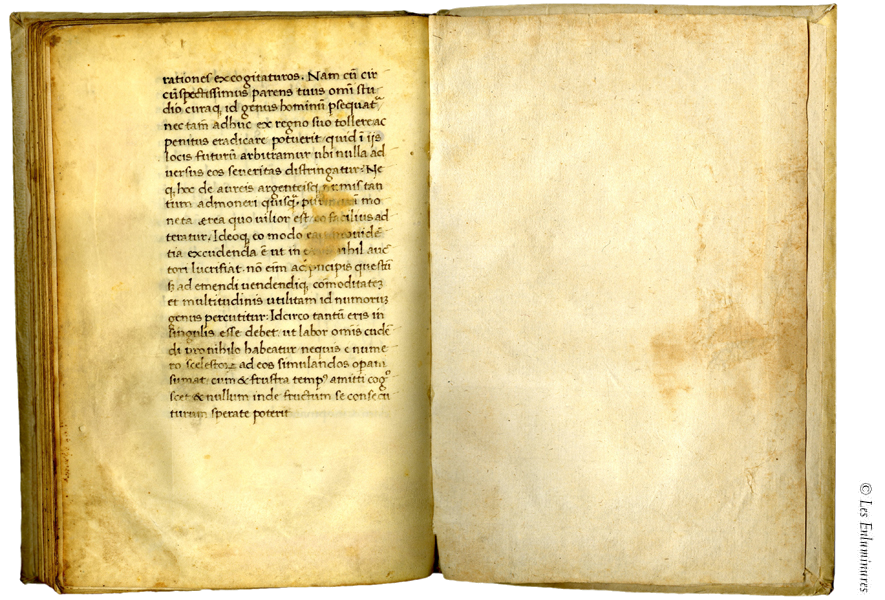 rationes excogitaturos. Nam cū cir
cūspectissimus parens tuus omī stu
dio curaq, id genus hominū psequat᷑
nec tam̄ adhuc ex regno suo tollere ac
penitus eradicare potuerit quid ī ijs
locis futurū arbitramur ubi nulla ad
uersus eos seueritas distringatur: Ne
q, hoc de aureis argenteisq, numis tan
tum admoneri quisq, mo
neta ærea quo uilior est, eo facilius ad
teratur. Ideoq, eo modo
tia excudenda ē ut in nihil auc
tori lucrifiat. nō eīm ad pncipis questū
ad emendi uendendiq, cōmoditatē
et multitudinis utilitatm id numorum
genus percutitur: Idcirco tantū eris in
singulis esse debet. ut labor omīs cudē
di pro nihilo habeatur nequis e nume
ro scelestorꝝ ad eos simulandos opam
sumat. cum & frustra temp9 amitti cog
scet & nullum inde fructum se consecu
turum sperare poterit
© Les Enluminures